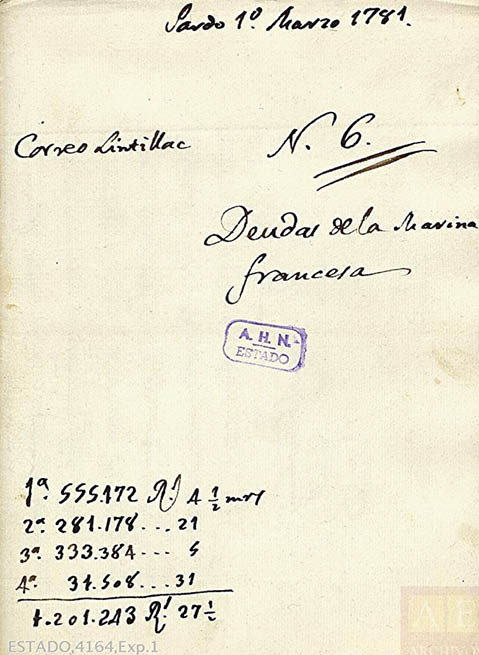 Pardo 1º Marzo 1781.
Correo Lintillac
N. 6.
Deudas de la Marina
francesa
A. H. N.
ESTADO
1ª. 555.172 Rˢ. 4 ½ mrs
2ª. 281.178... 21
3ª. 333.384... 5
4ª. 31.508... 31
1.201.243 Rˢ. 27 ½
ESTADO,4164,Exp.1
AE
ARCHIVOS